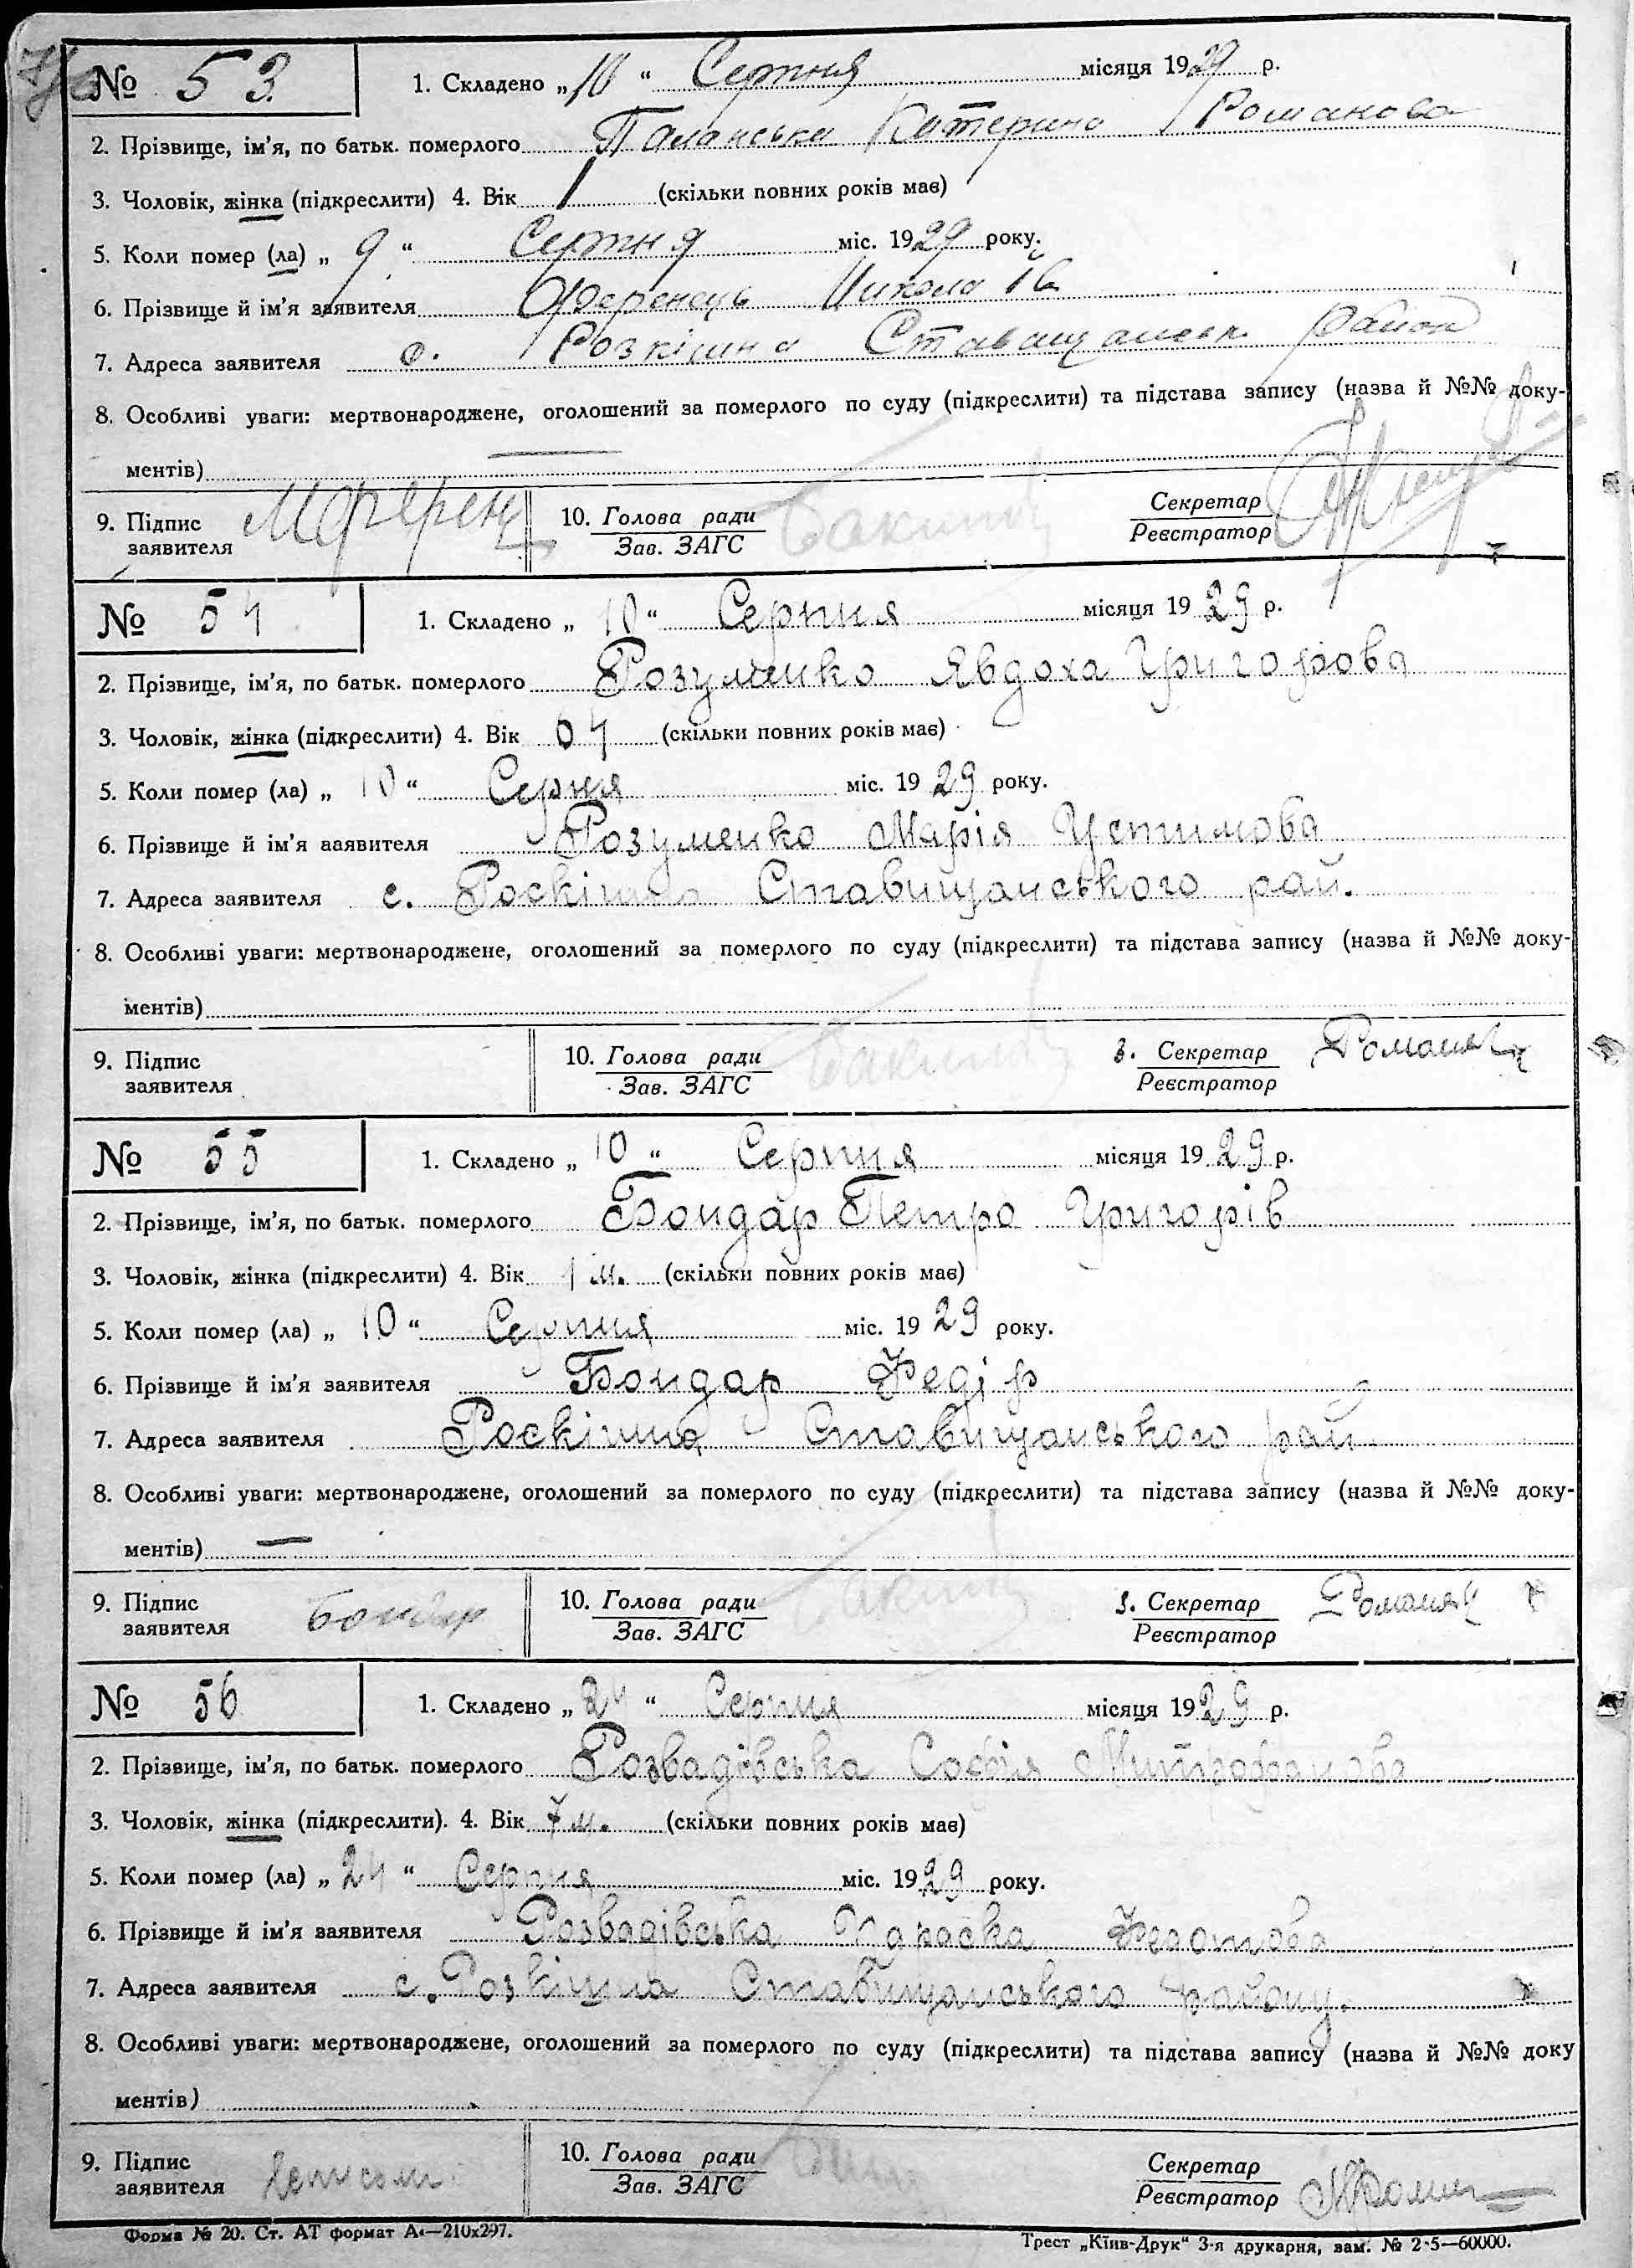 № 53. 1. Складено „10“ Серпня місяця 1929 р.
2. Прізвище, ім'я, по батьк. померлого Паланська Катерина Романова
3. Чоловік, жінка (підкреслити) 4. Вік 1 (скільки повних років має)
5. Коли помер (ла) „9“ Серпня міс. 1929 року.
6. Прізвище й ім'я заявителя Ференець Микола Ів
7. Адреса заявителя с. Розкішна Ставищанськ. район
8. Особливі уваги: мертвонароджене, оголошений за померлого по суду (підкреслити) та підстава запису (назва й №№ доку-
ментів)
9. Підпис заявителя МФерен 10. Голова ради Зав. ЗАГС Секретар Реєстратор
№ 54 1. Складено „10“ Серпня місяця 1929 р.
2. Прізвище, ім'я, по батьк. померлого Розуменко Явдоха Григорова
3. Чоловік, жінка (підкреслити) 4. Вік 64 (скільки повних років має)
5. Коли помер (ла) „10“ Серня міс. 1929 року.
6. Прізвище й ім'я заявителя Розуменко Марія Устимова
7. Адреса заявителя с. Роскішна Ставищанського рай.
8. Особливі уваги: мертвонароджене, оголошений за померлого по суду (підкреслити) та підстава запису (назва й №№ доку-
ментів)
9. Підпис заявителя 10. Голова ради Зав. ЗАГС З. Секретар Реєстратор
№ 55 1. Складено „10“ Серпня місяця 1929 р.
2. Прізвище, ім'я, по батьк. померлого Бондар Петро Григорів
3. Чоловік, жінка (підкреслити) 4. Вік 1 м. (скільки повних років має)
5. Коли помер (ла) „10“ Серпня міс. 1929 року.
6. Прізвище й ім'я заявителя Бондар Федір
7. Адреса заявителя Роскішна Ставищанського рай.
8. Особливі уваги: мертвонароджене, оголошений за померлого по суду (підкреслити) та підстава запису (назва й №№ доку-
ментів) —
9. Підпис заявителя Бондар 10. Голова ради Зав. ЗАГС З. Секретар Реєстратор
№ 56 1. Складено „24“ Серпня місяця 1929 р.
2. Прізвище, ім'я, по батьк. померлого Розвадівська Софія Митрофанова
3. Чоловік, жінка (підкреслити). 4. Вік 7 м. (скільки повних років має)
5. Коли помер (ла) „24“ Серпня міс. 1929 року.
6. Прізвище й ім'я заявителя Розвадівська Параска Федотова
7. Адреса заявителя с. Розкішна Ставищанського району.
8. Особливі уваги: мертвонароджене, оголошений за померлого по суду (підкреслити) та підстава запису (назва й №№ доку
ментів)
9. Підпис заявителя 10. Голова ради Зав. ЗАГС Секретар Реєстратор
Форма № 20. Ст. АТ формат А4—210х297. Трест „Київ-Друк“ 3-я друкарня, зам. № 2-5—60000.